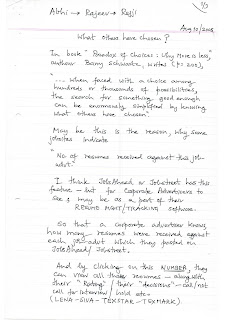 1/3
Abhi → Rajeev → Rajji
Aug 10/2008
What others have chosen ?
In book "Paradox of Choices : Why More is Less",
author Barry Schwartz, writes (P: 202),
"... when faced with a choice among
hundreds or thousands of possibilities,
the search for something good enough
can be enormously simplified by knowing
what others have chosen"
May be this is the reason, why some
jobsites indicate
"No of resumes received against this job-
advt"
I think JobsAhead or Jobstreet has this
feature - but for Corporate Advertisers to
see & may be as a part of their
RESUME MGMT/TRACKING software.
So that a corporate advertiser knows
how many resumes were received against
each job-advt which they posted on
JobsAhead / Jobstreet.
And by clicking on this NUMBER, they
can view all those resumes - along with
their "Rating" / their "decisions" - call/not
call for Interview / hold etc.
(LENA - GIVA - TEXSTAR - TEXMARK)